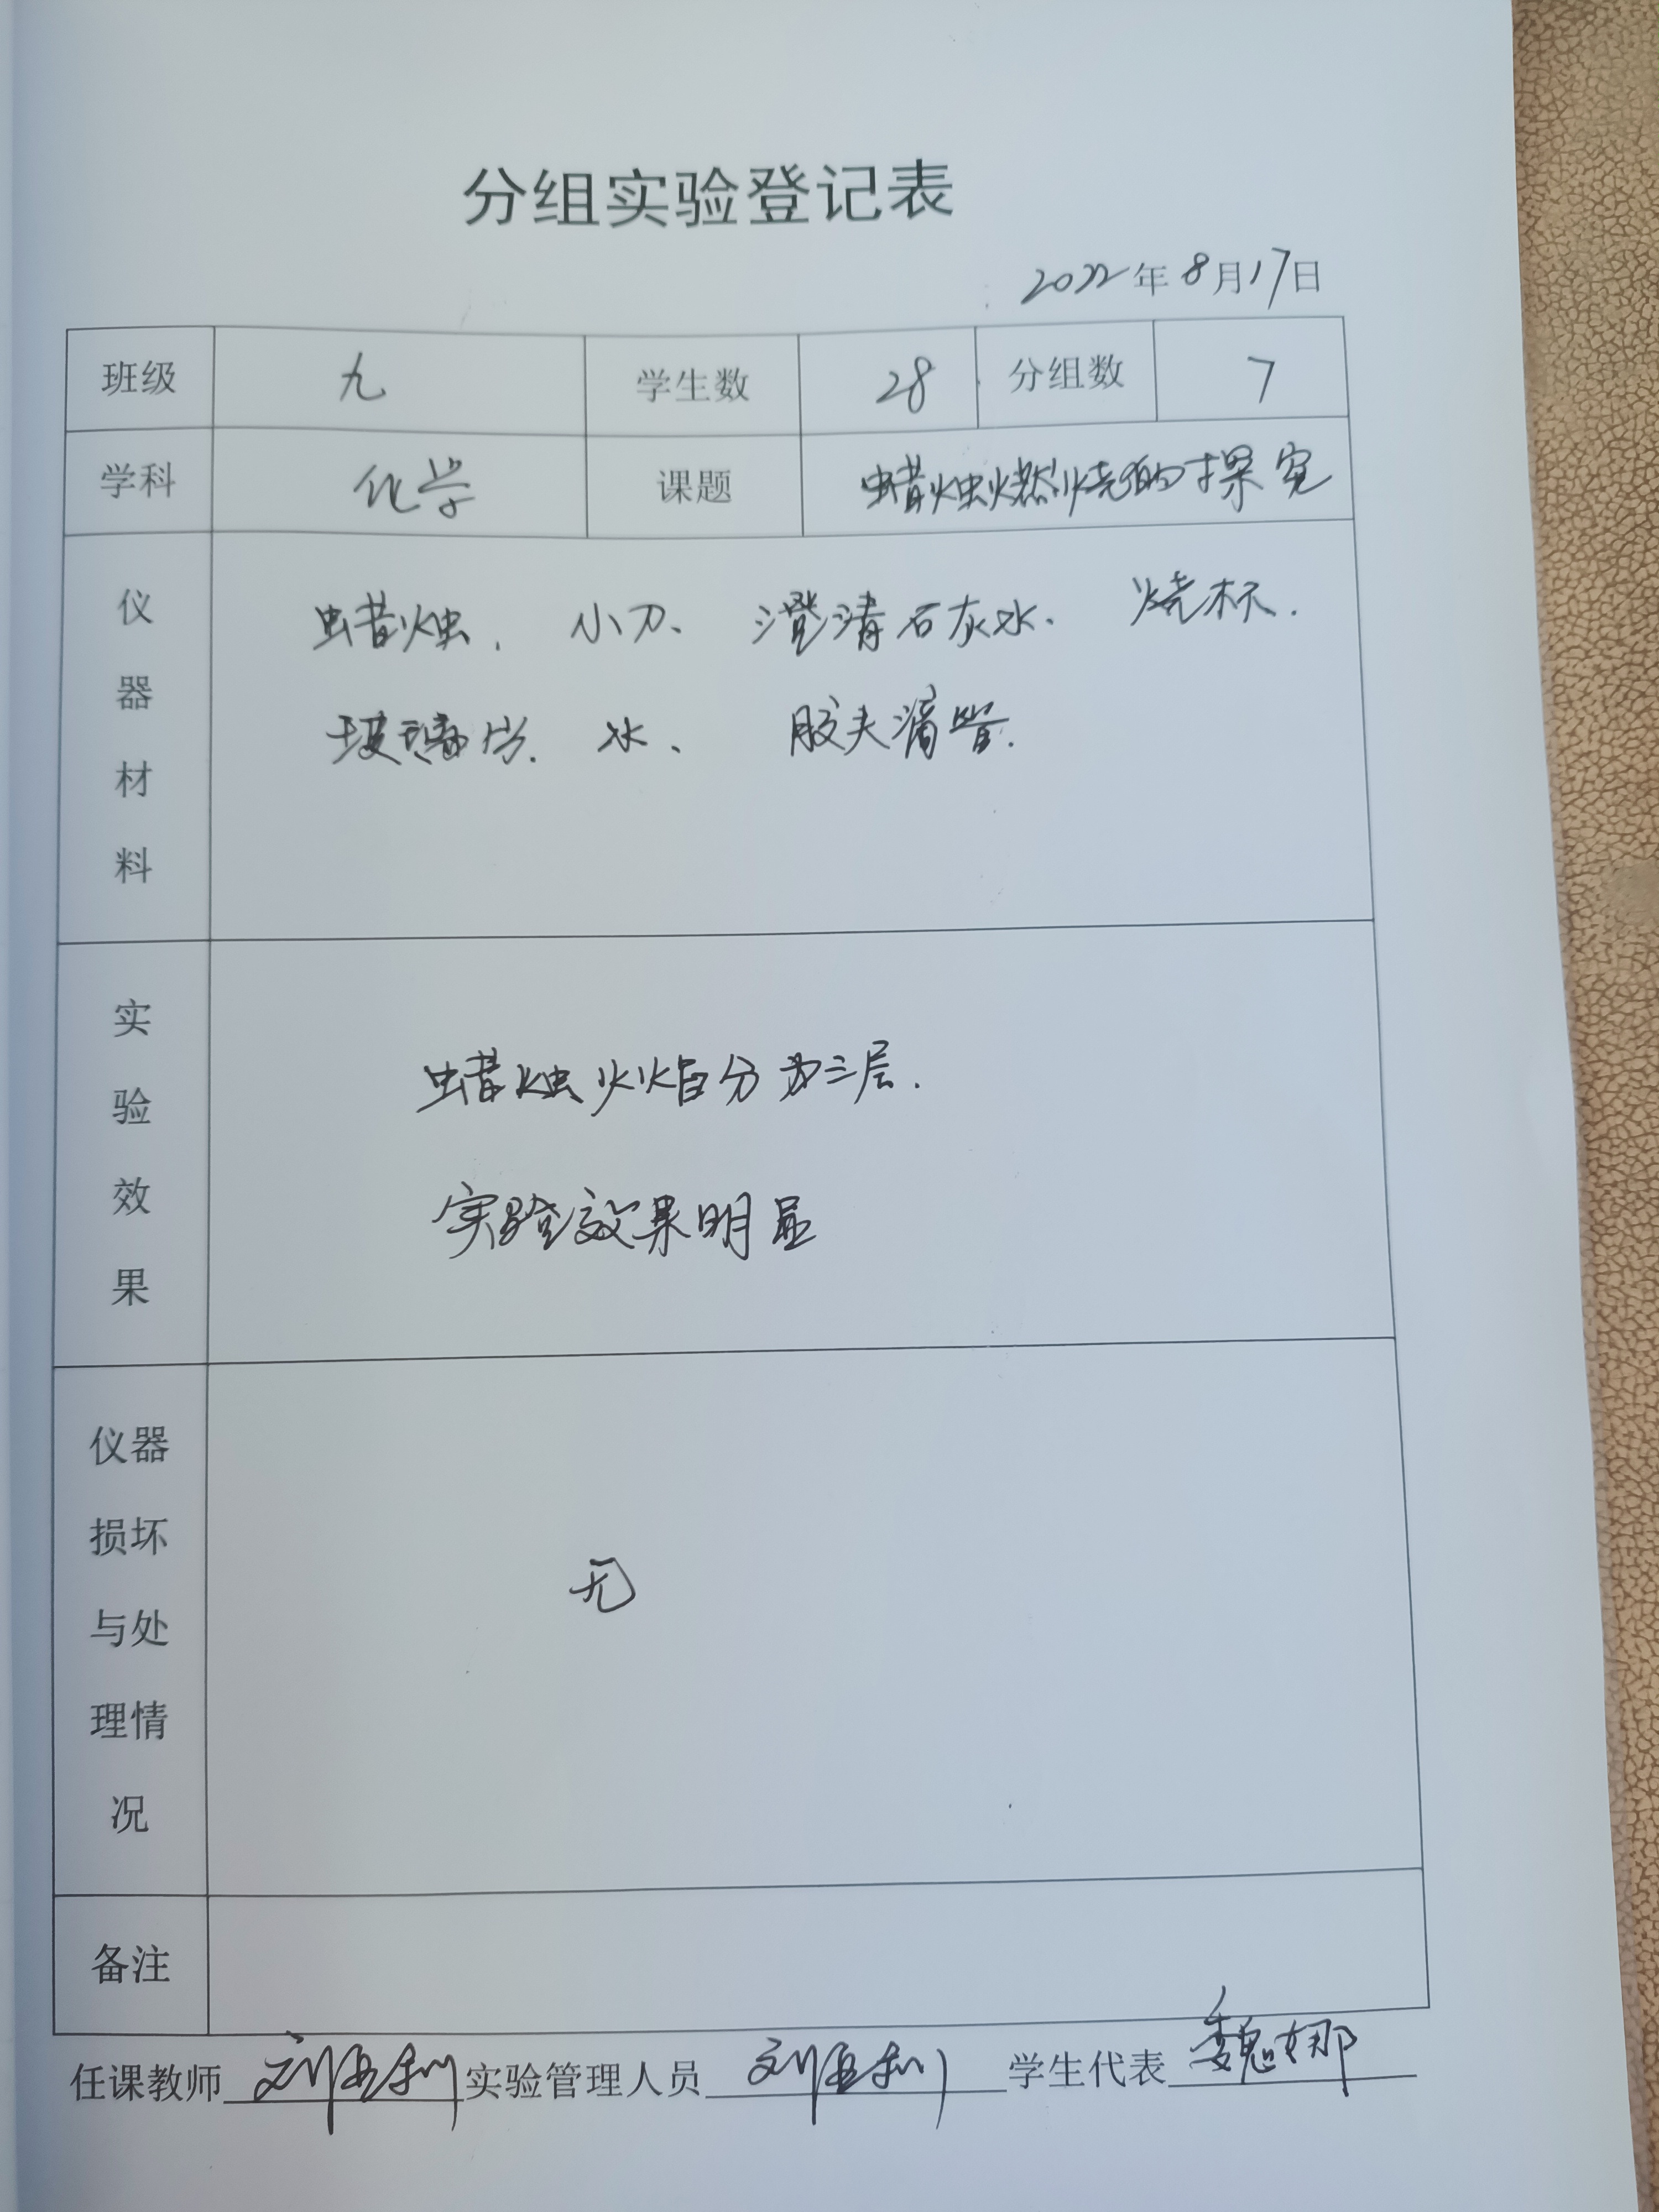 分组实验登记表
2022年8月17日
班级 九 学生数 28 分组数 7
学科 化学 课题 蜡烛燃烧的探究
仪器材料
蜡烛. 小刀、澄清石灰水、烧杯.
玻璃片. 水、胶头滴管.
实验效果
蜡烛火焰分为三层.
实验效果明显
仪器损坏与处理情况
无
备注
任课教师 刘亚利 实验管理人员 刘亚利 学生代表 魏娜